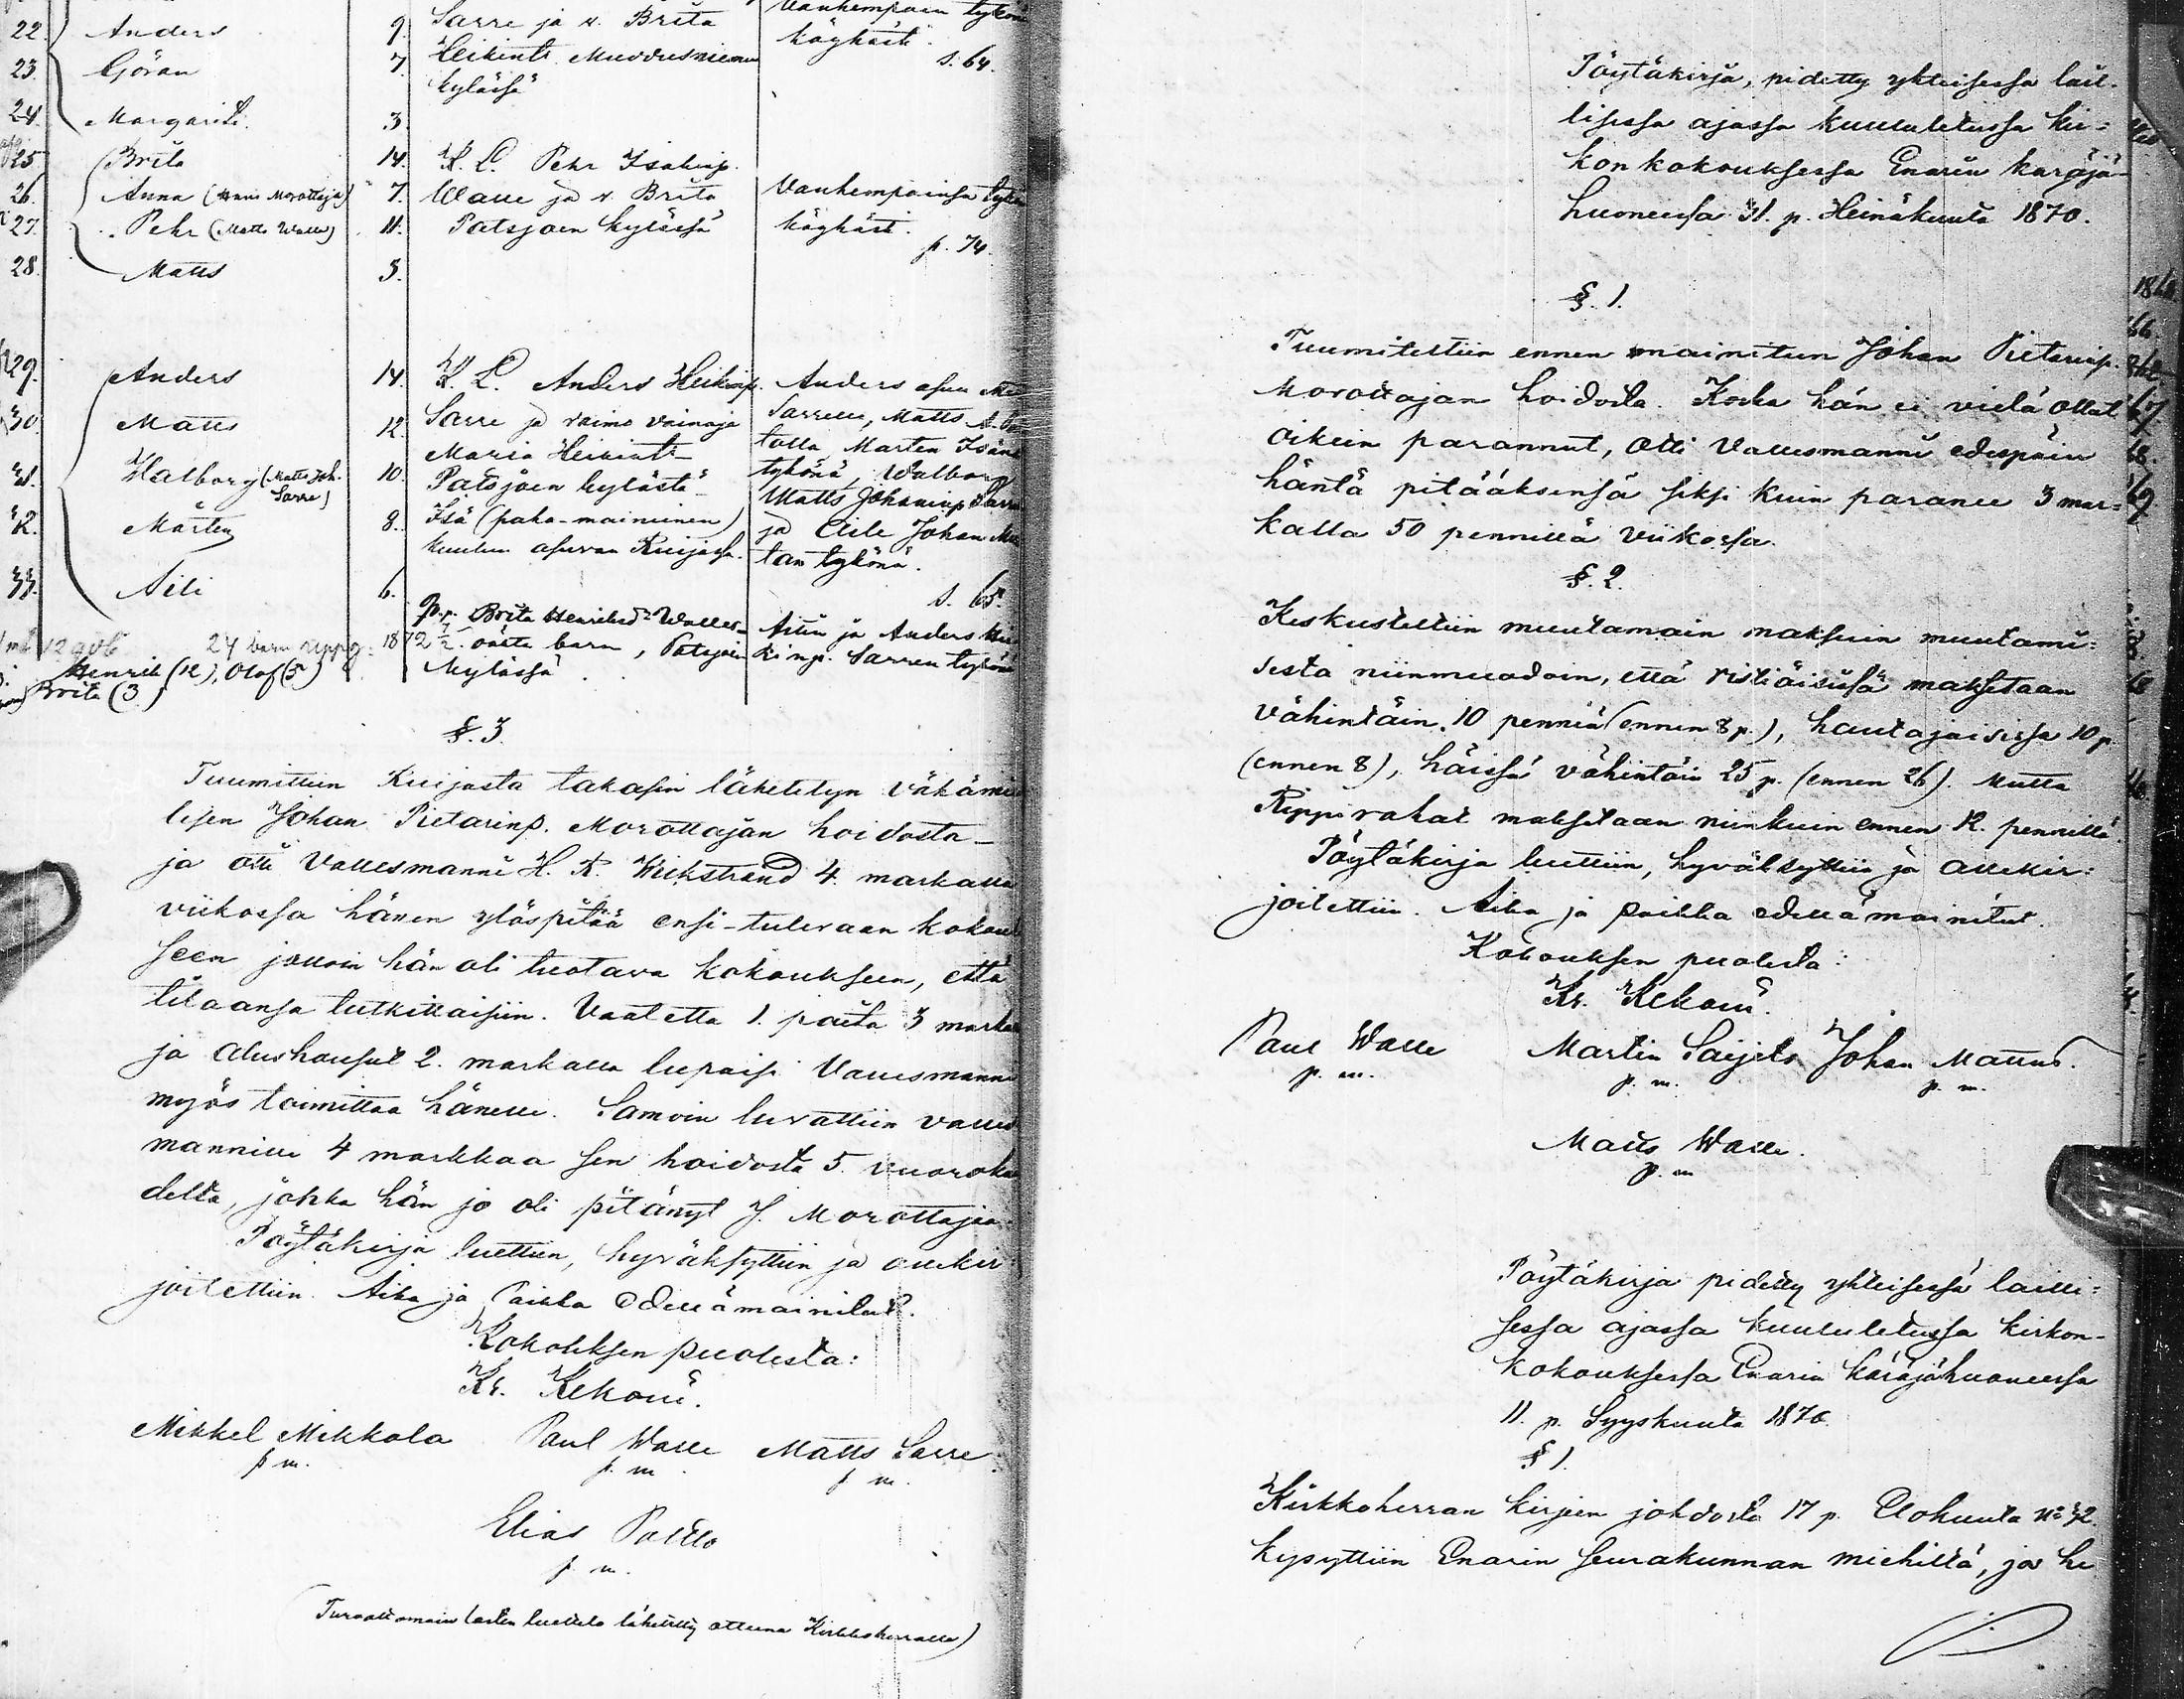 22. Anders 9. Sarre ja v. Brita Vanhempain tykönä
23. Göran 7. Heikint. Muddusniemen köyhästi. s. 64.
kylässä
24. Margareta. 3.
25 Brita 14. K. L. Pehr Isakinp.
26. Anna (Hans Morottaja) 7. Walle ja v. Brita Vanhempainsa tykö
27. Pehr (Matts Walle) 11. Patsjoen kylässä köyhästi.
p. 74.
28. Matts 5.
29. Anders 14. K. L. Anders Heikinp. Anders apu
30. Matts 12. Sarre ja vaimo vainaja Sarrelle, Matts
Maria Heikint. talla, Marten Isäns
31. Walborg (Matts Joh. Sarre) 10. Patsjoen kylästä tykönä, Walborg
32. Mårten 8. Isä (paha-maininen) Matts Johaninp Sarre
kuuluu asuvan Ruijassa. ja Aile Johan
33. Aili 6. tan tykönä.
s. 65.
p.r. Brita Henriksd:r Walles
24 barn uppg: 1872 7/2 oäkta barn, Patsjoen Aili ja Anders Hei
Henrik (12), Olof (5) kylässä kinp. Sarren tykönä
Brita (3)
§. 3.
Tuumittiin Ruijasta takasin lähetetyn väkämi
lisen Johan Pietarinp. Morottajan hoidosta
ja otti Vallesmanni H. R. Wickstrand 4. markalla
viikossa hänen ylöspitää ensi-tulevaan kokouk
seen jolloin hän oli tuotava kokoukseen, että
tilaansa tutkittaisiin. Vaatetta 1. paita 3 markan
ja alushousut 2. markalla lupaisi Vallesmanni
myös toimittaa hänelle. Samoin luvattiin valles
mannille 4 markkaa sen hoidosta 5. vuoroka
delta, jokka hän jo oli pitänyt J. Morottajaa.
Pöytäkirja luettiin, hyväksyttiin ja allekir:
joitettiin. Aika ja Paikka edellämainitut.
Kokouksen puolesta:
Kr. Kekoni.
Mikkel Mikkola Paul Walle Matts Sarre.
p m. p. m. p m.
Elias Paltto
p. m.
(Turvattomain lasten luettelo lähetetty otteena Kirkkoherralle)
Pöytäkirja, pidetty yhteisessa lail-
lisessa ajassa kuulutetussa kir=
kon kokouksessa Enarin käräjä-
huoneessa 31. p. Heinäkuuta 1870.
§. 1.
Tuumitettiin ennen mainitun Johan Pietarinp.
Morottajan hoidosta. Koska hän ei vielä ollut
oikein parannut, otti Vallesmanni edespäin
häntä pitääksensä siksi kuin paranee 3 mar=
kalla 50 pennillä viikossa.
§. 2.
Keskusteltiin muutamain maksuin muutami:
sesta niinmuodoin, että ristiäisissä maksetaan
vähintäin 10 penniä (ennen 8 p.), hautajaisissa 10 p.
(ennen 8), häissä vähintäin 25 p. (ennen 26). Mutta
Rippirahat maksetaan niinkuin ennen 12. pennillä.
Pöytäkirja luettiin, hyväksyttiin ja allekir:
joitettiin. Aika ja paikka edellämainitut.
Kokouksen puolesta:
Kr. Kekoni.
Paul Walle Martin Saijets Johan Mattus.
p. m. p. m. p. m.
Matts Walle.
p. m
Pöytäkirja pidetty yhteisessä lailli=
sessa ajassa kuulutetussa kirkon-
kokouksessa Enarin käräjähuoneessa
11. p. Syyskuuta 1870.
§ 1.
Kirkkoherran kirjeen johdosta 17 p. Elokuuta No 32.
kysyttiin Enarin seurakunnan miehiltä, jos he